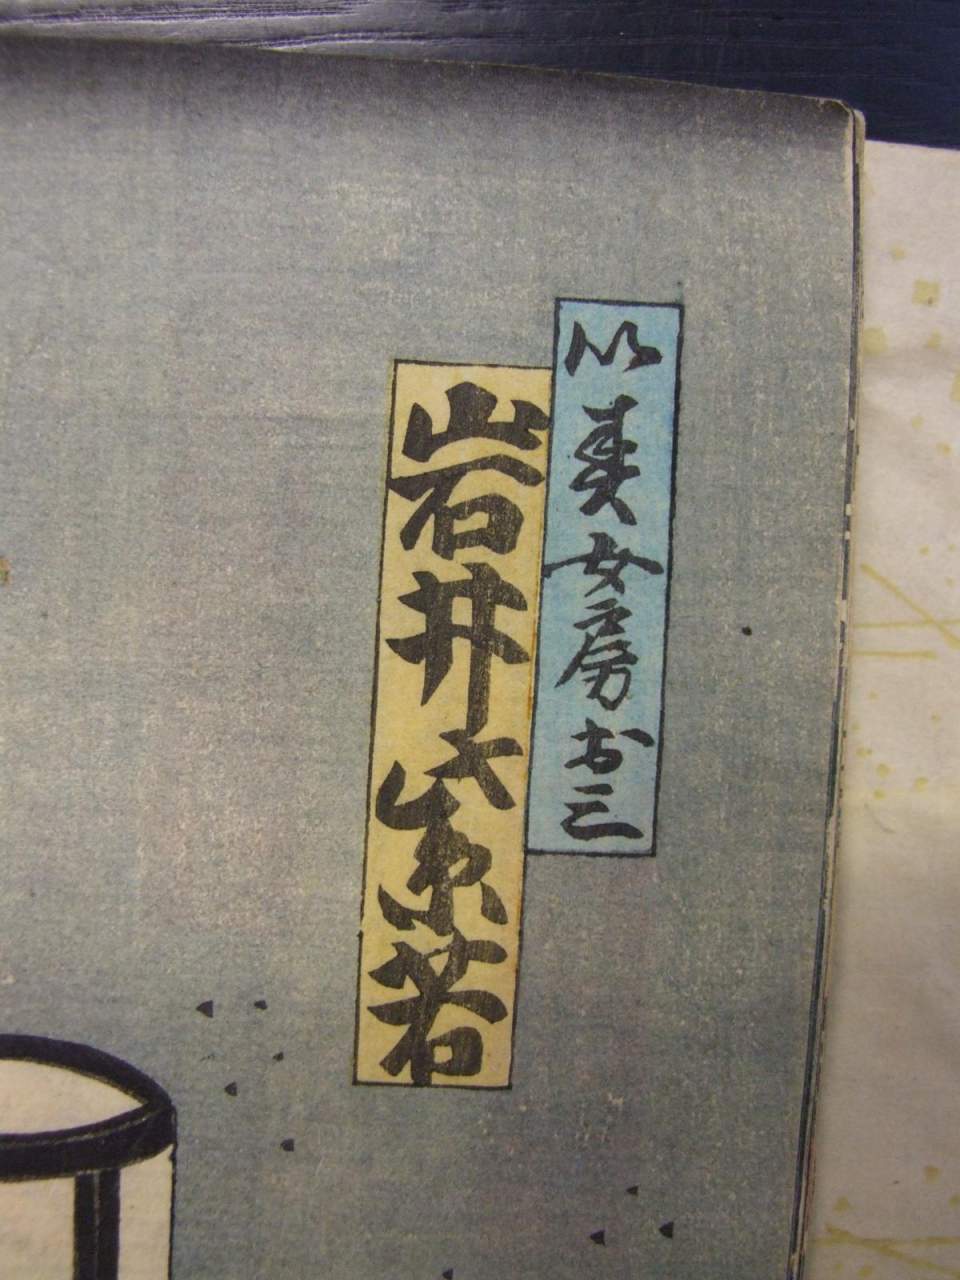 以春女房お三
岩井紫若